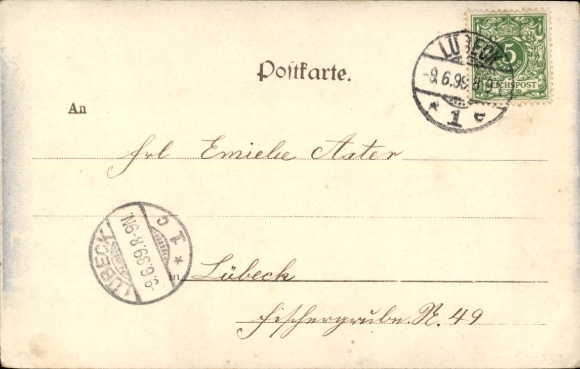 LÜBECK
-9.6.99.8-9N
* 1 c
5
REICHSPOST
Postkarte.
An
Frl Emielie Aster
LÜBECK
-9.6.99.8-9N.
* 1 c
in Lübeck
Fischergrube. N. 49